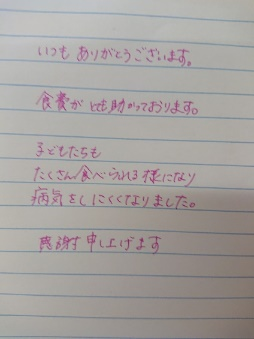 いつもありがとうございます。
食費がとても助かっております。
子どもたちも
たくさん食べられる様になり
病気をしにくくなりました。
感謝申し上げます